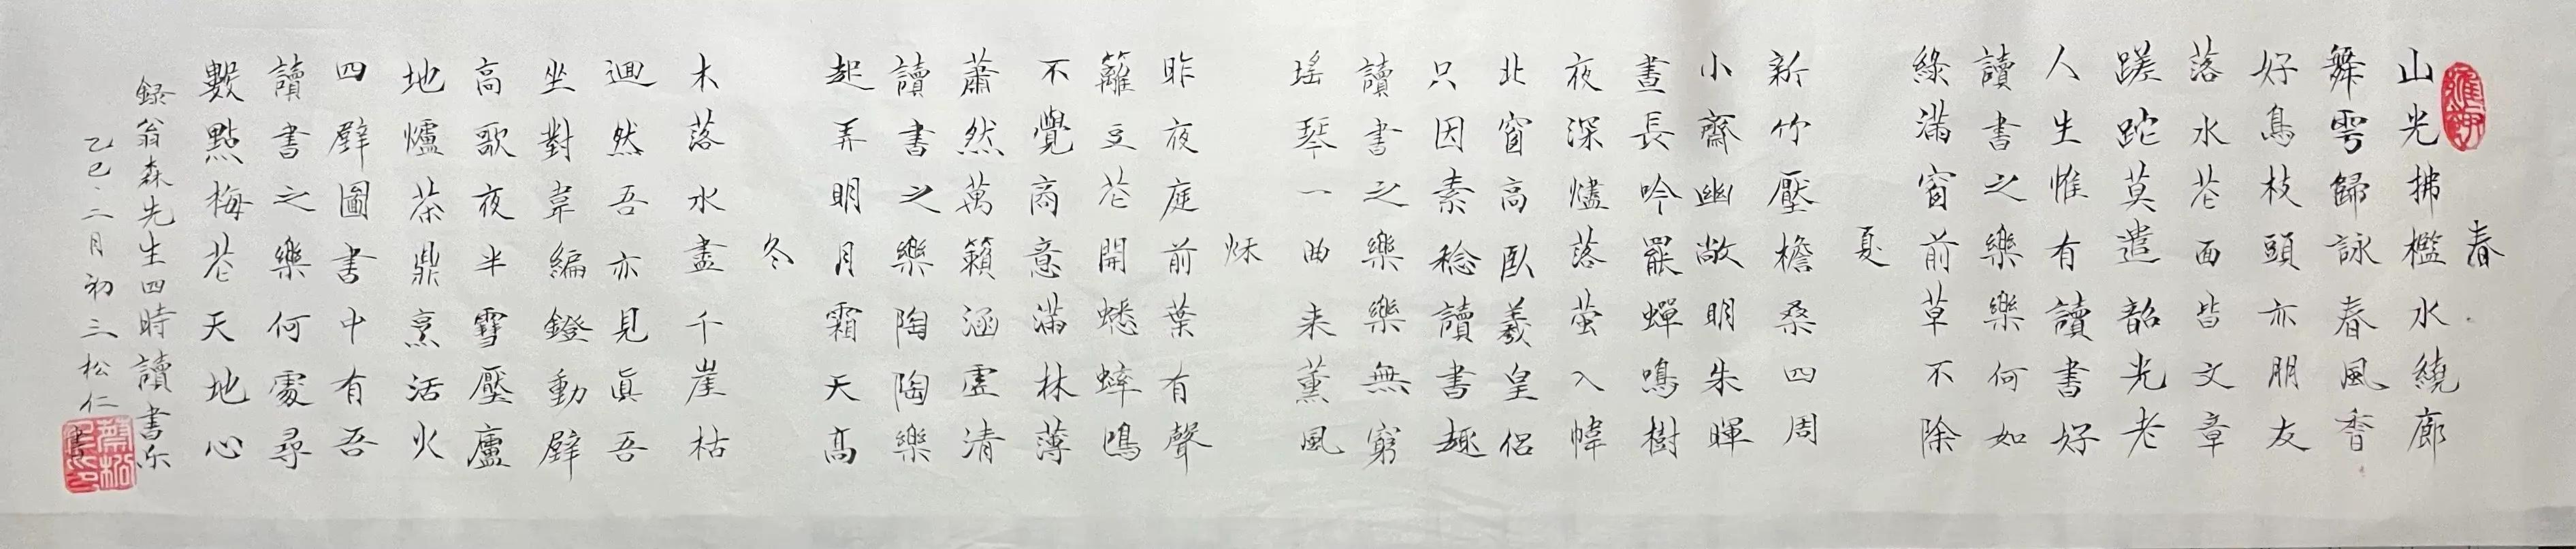 春
山光拂檻水繞廊
舞雩歸詠春風香
好鳥枝頭亦朋友
落水花面皆文章
蹉跎莫遣韶光老
人生惟有讀書好
讀書之樂樂何如
綠滿窗前草不除
夏
新竹壓檐桑四周
小齋幽敞明朱暉
晝長吟罷蟬鳴樹
夜深燼落萤入幃
北窗高臥羲皇侣
只因素稔讀書趣
讀書之樂樂無窮
瑤琴一曲来薰風
秋
昨夜庭前葉有聲
籬豆花開蟋蟀鳴
不覺商意滿林薄
蕭然萬籟涵虛清
讀書之樂陶陶樂
起弄明月霜天高
冬
木落水盡千崖枯
迴然吾亦見真吾
坐對韋編鐙動壁
高歌夜半雪壓廬
地爐茶鼎烹活火
四壁圖書中有吾
讀書之樂何處尋
數點梅花天地心
錄翁森先生四時讀書乐
乙巳二月初三松仁書